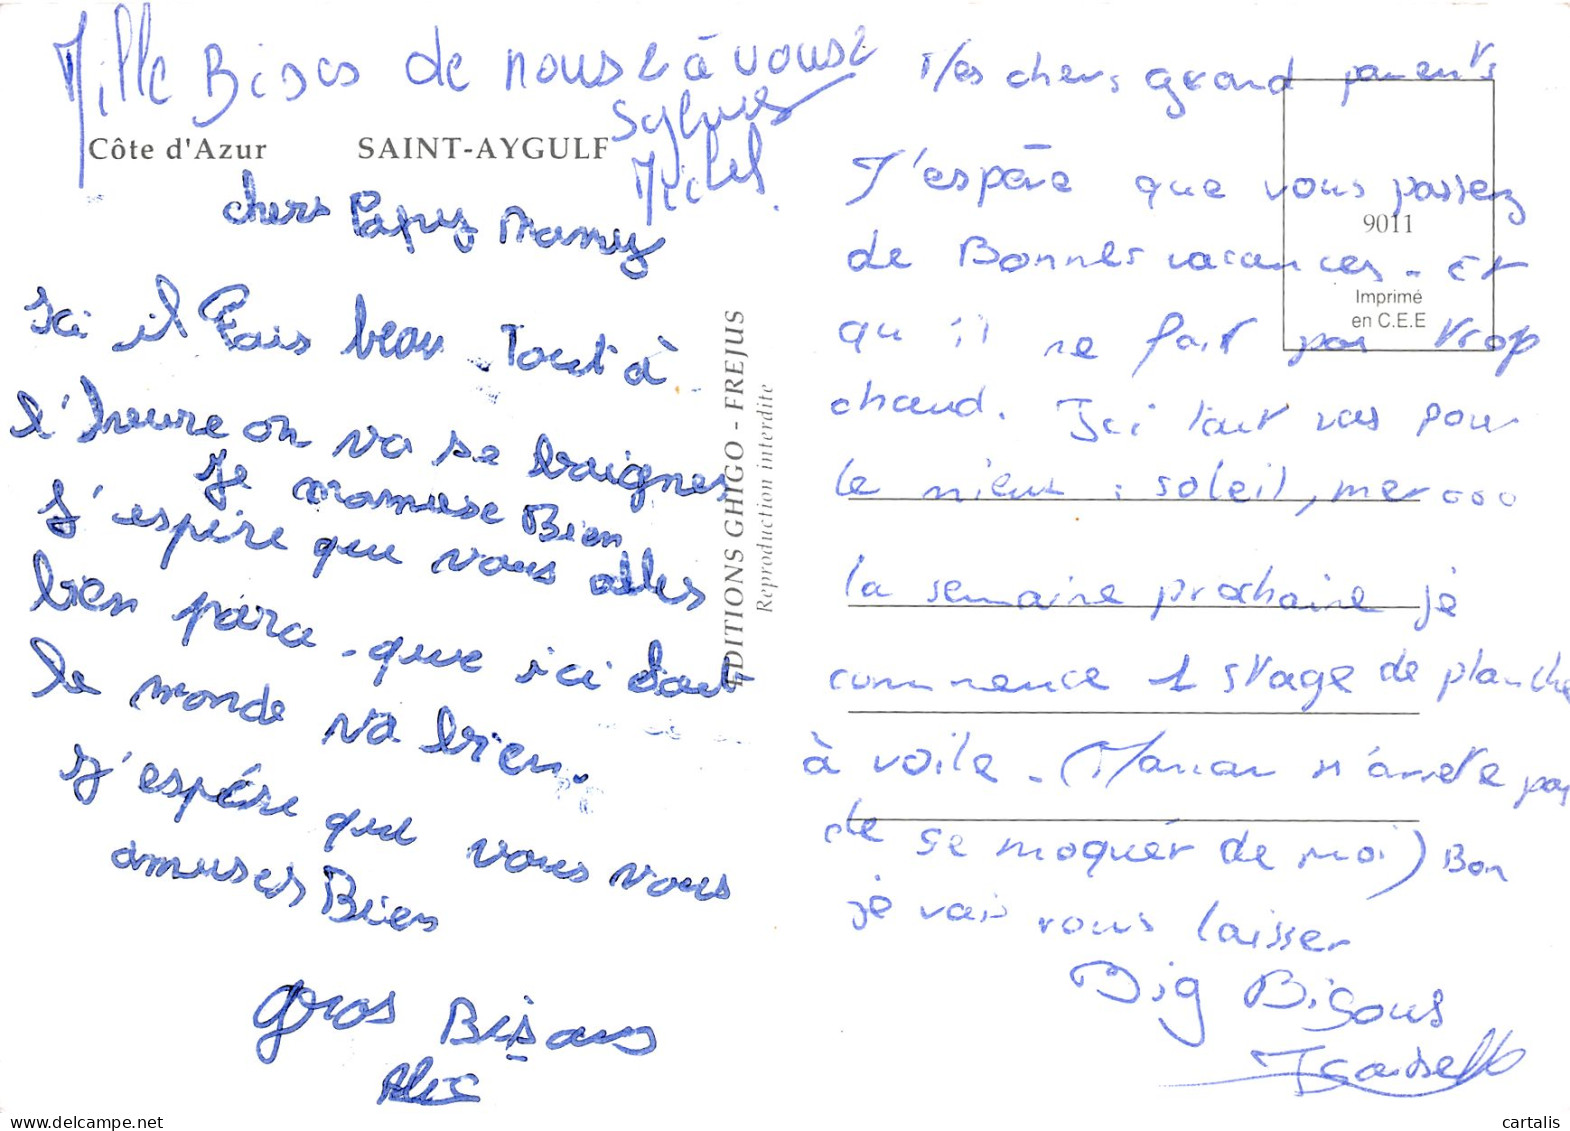 Mille Bises de nous 2 à vous 2
Sylvie
Michel.
Côte d'Azur SAINT-AYGULF
chers Papy Mamy
Ici il fais beau. Tout à
l'heure on va se baigner
Je m'amuse Bien
J'espère que vous alles
bien para. que ici tout
le monde va bien.
J'espére que vous vous
amuses Bien
gros Bisous
Alic
EDITIONS GHIGO - FREJUS
Reproduction interdite
Mes chers grand parents
J'espère que vous passez
de Bonnes vacances. Et
qu'il ne fait pas trop
chaud. Ici tout vas pour
le mieux : soleil, mer ooo
la semaine prochaine je
commence 1 stage de planche
à voile. (Manan n'arrete pas
de se moquer de moi) Bon
je vais vous laisser
Big Bisous
9011
Imprimé
en C.E.E
cartalis.com